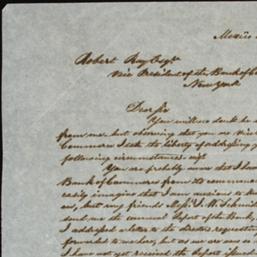 Mexico
Robert Ray Esqr
Vice President of the Bank of C
New York
Dear Sir
You will no doubt be
from me, but observing that you are Vice
Commerce I take the liberty of addressing y
following circumstances. viz
You are probably aware that I ha
Bank of Commerce from its commence
easily imagine that I am anxious to
ers, but my friends Messrs J. W. Schmidt
sent me the annual Report of the Bank,
I addressed a letter to the directors requesting
forwarded to me here, but as we are now in
I have not yet received the Report